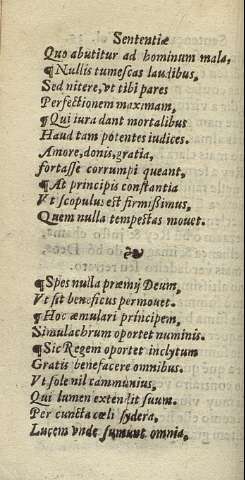 Sententiæ
Quo abutitur ad hominum mala,
¶Nullis tumescas laudibus,
Sed nitere, vt tibi pares
Perfectionem maximam,
¶Qui iura dant mortalibus
Haud tam potentes iudices.
Amore, donis, gratia,
fortasse corrumpi queant,
¶At principis constantia
Vt scopulus est firmissimus,
Quem nulla tempestas mouet.
¶Spes nulla præmij Deum,
Vt sit beneficus permouet.
¶Hoc æmulari principem,
Simulachrum oportet numinis.
¶Sic Regem oportet inclytum
Gratis benefacere omnibus.
Vt sole nil communius,
Qui lumen extendit suum.
Per cuncta cœli sydera,
Lucem vnde sumunt omnia,